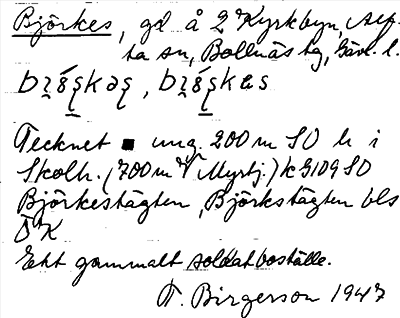 Björkes, gd å 2 Kyrkbyn, Arp-
ta sn, Bollnäs tg, Gävl. l.
Tecknet ■ ung. 200 m SO h i
Skolh. (700 m V Myrtj.) k 9109 SO
Björkestägten, Björkstägten bls
Ö K
Ett gammalt soldatboställe.
F. Birgerson 1947